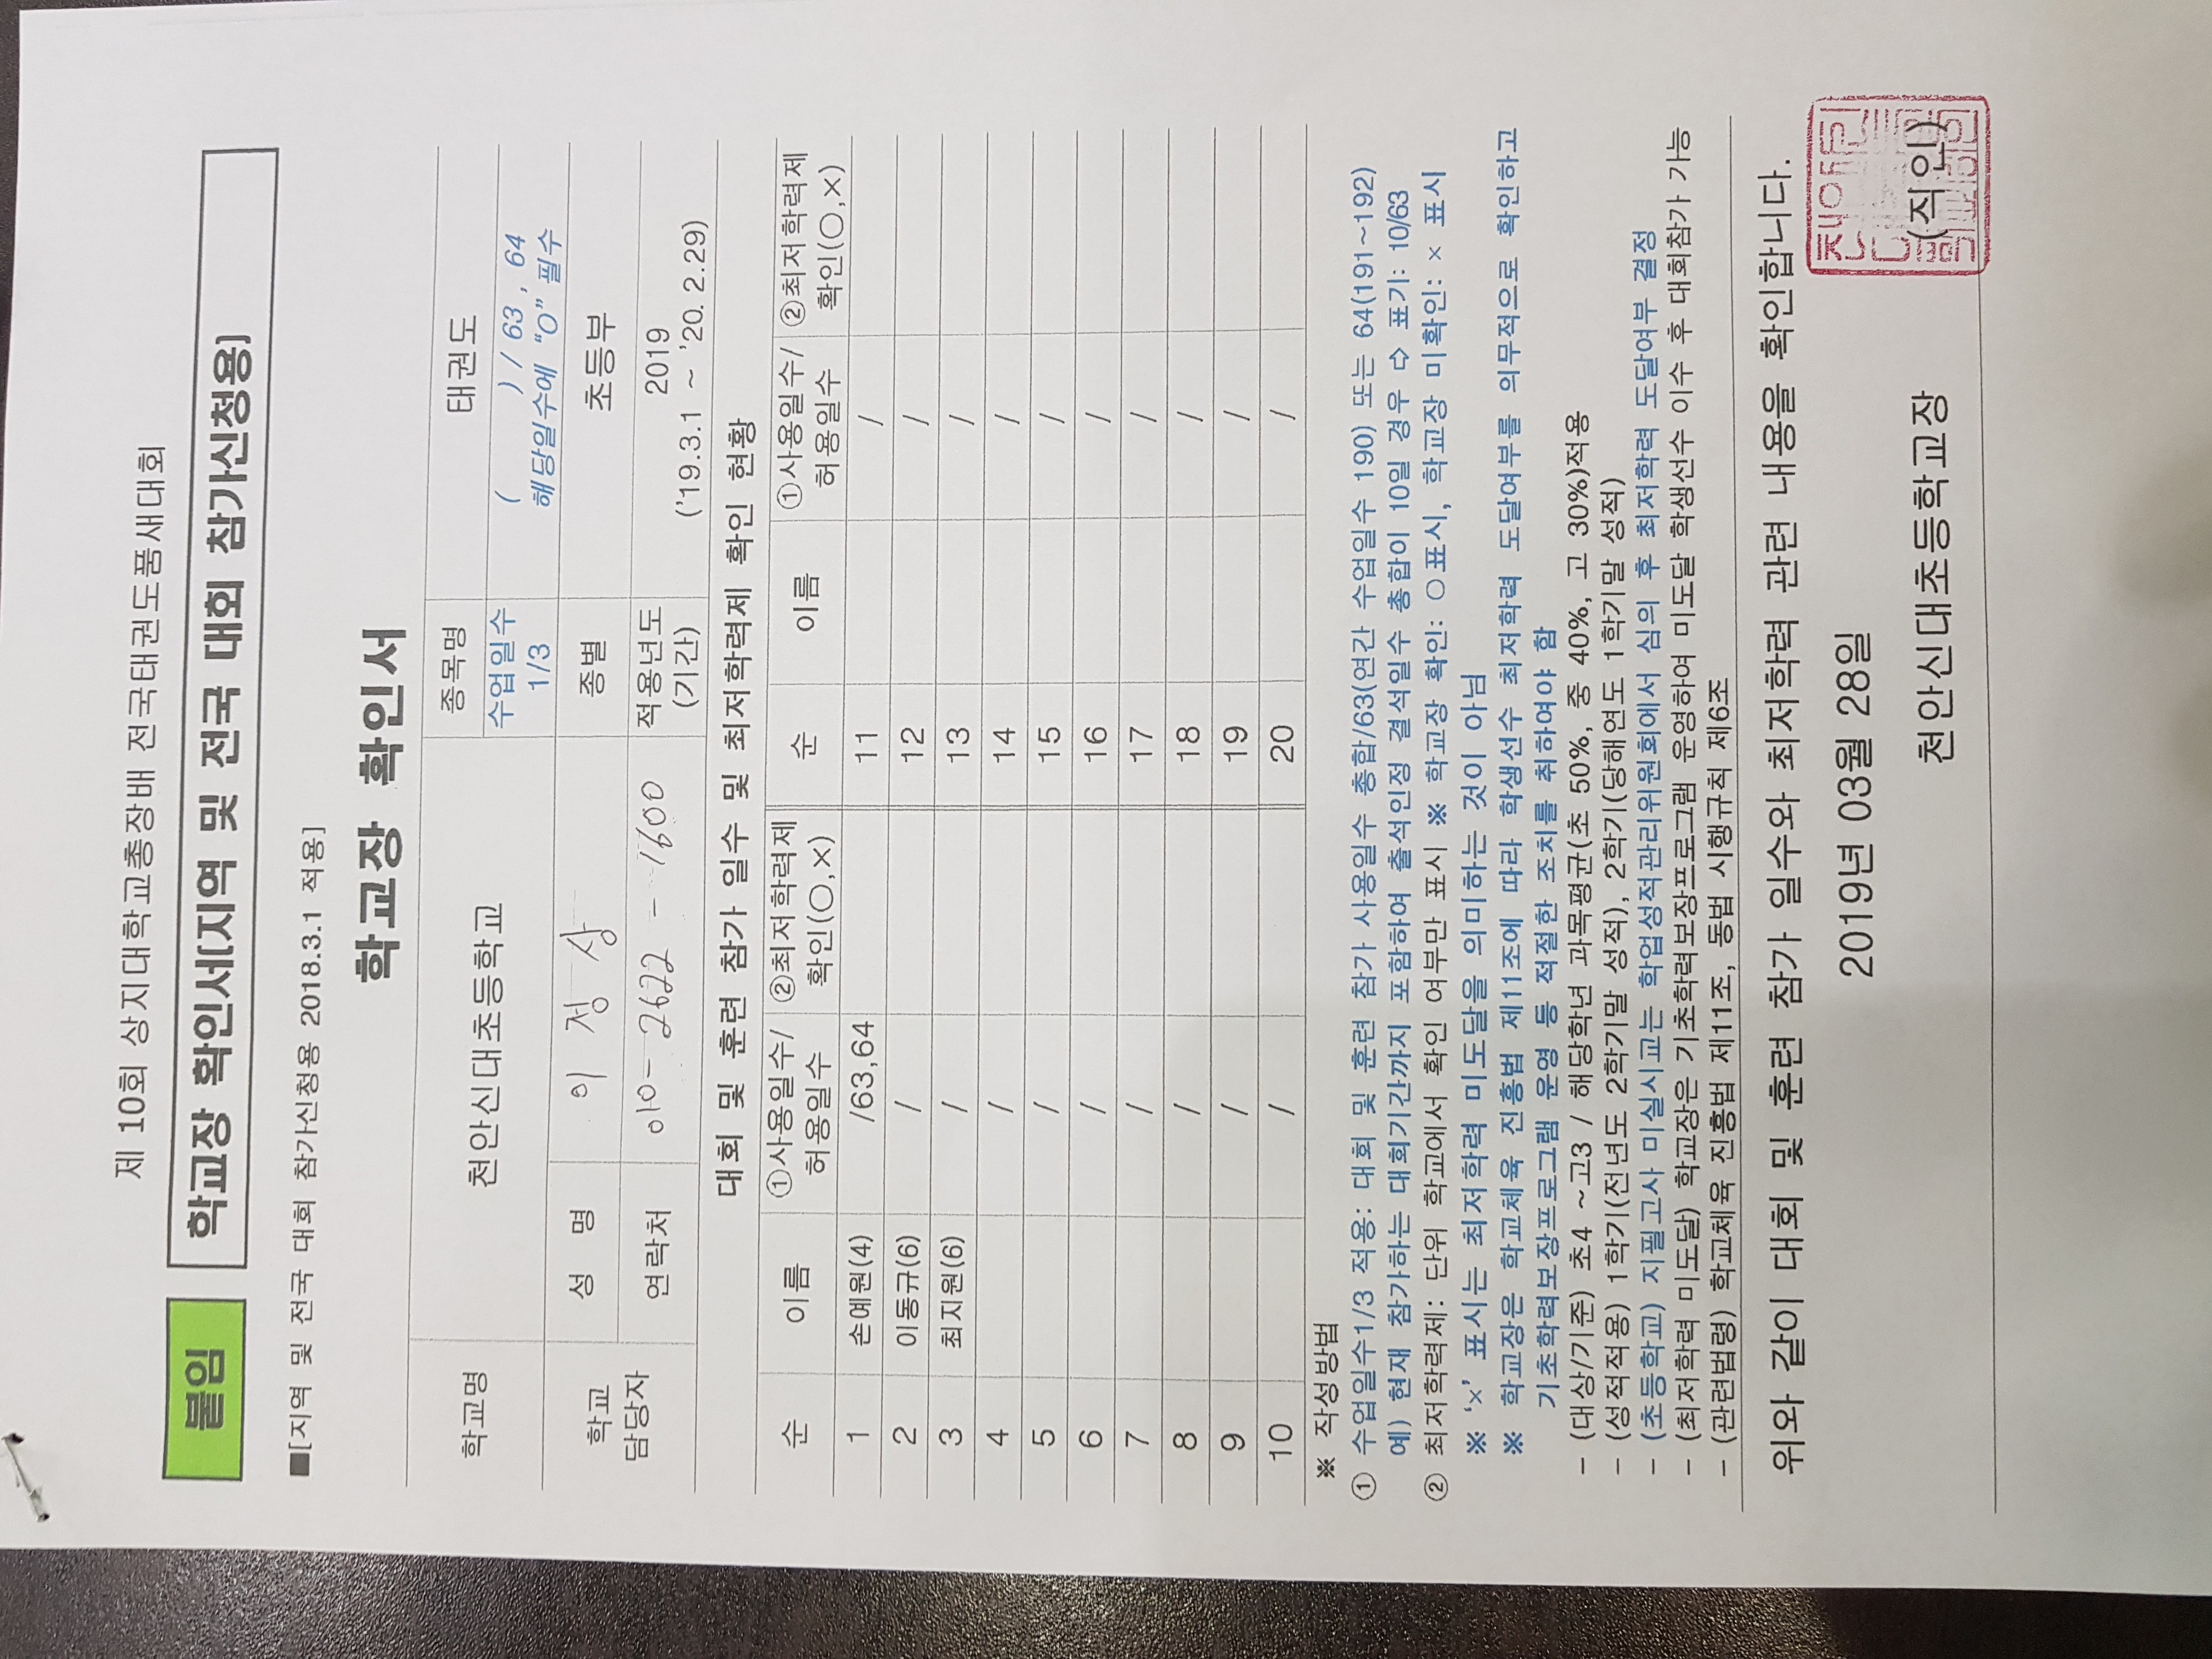 제 10회 상지대학교총장배 전국태권도품새대회
붙임
학교장 확인서[지역 및 전국 대회 참가신청용]
■[지역 및 전국 대회 참가신청용 2018.3.1 적용]
학교장 확인서
학교명 천안신대초등학교 종목명 태권도
수업일수 1/3 ( ) / 63 , 64
해당일수에 “O” 필수
학교 담당자 성 명 이 정 상 종별 초등부
연락처 010-2622-1600 적용년도 (기간) 2019
('19.3.1 ~ '20. 2.29)
대회 및 훈련 참가 일수 및 최저학력제 확인 현황
순 이름 ①사용일수/허용일수 ②최저학력제 확인(○,×) 순 이름 ①사용일수/허용일수 ②최저학력제 확인(○,×)
1 손예원(4) /63,64 11 /
2 이동규(6) / 12 /
3 최지원(6) / 13 /
4 / 14 /
5 / 15 /
6 / 16 /
7 / 17 /
8 / 18 /
9 / 19 /
10 / 20 /
※ 작성방법
① 수업일수1/3 적용: 대회 및 훈련 참가 사용일수 총합/63(연간 수업일수 190) 또는 64(191~192)
예) 현재 참가하는 대회기간까지 포함하여 출석인정 결석일수 총합이 10일 경우 ⇨ 표기: 10/63
② 최저학력제: 단위 학교에서 확인 여부만 표시 ※ 학교장 확인: ○표시, 학교장 미확인: × 표시
※ ‘×’ 표시는 최저학력 미도달을 의미하는 것이 아님
※ 학교장은 학교체육 진흥법 제11조에 따라 학생선수 최저학력 도달여부를 의무적으로 확인하고
기초학력보장프로그램 운영 등 적절한 조치를 취하여야 함
- (대상/기준) 초4 ~고3 / 해당학년 과목평균(초 50%, 중 40%, 고 30%)적용
- (성적적용) 1학기(전년도 2학기말 성적), 2학기(당해연도 1학기말 성적)
- (초등학교) 지필고사 미실시교는 학업성적관리위원회에서 심의 후 최저학력 도달여부 결정
- (최저학력 미도달) 학교장은 기초학력보장프로그램 운영하여 미도달 학생선수 이수 후 대회참가 가능
- (관련법령) 학교체육 진흥법 제11조, 동법 시행규칙 제6조
위와 같이 대회 및 훈련 참가 일수와 최저학력 관련 내용을 확인합니다.
2019년 03월 28일
천안신대초등학교장 (직인)